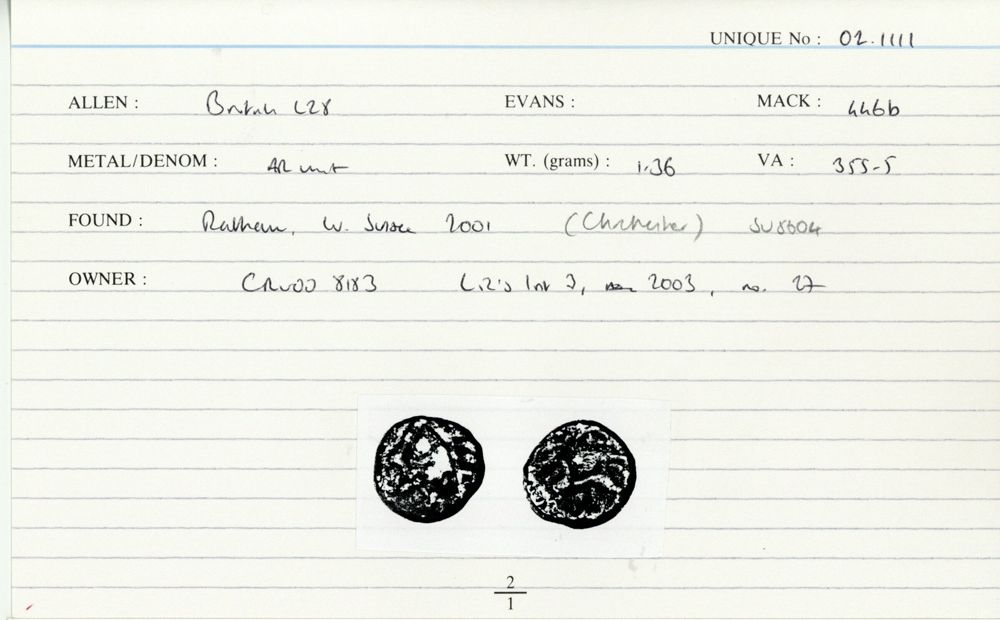 UNIQUE No : 02.1111
ALLEN : British L28 EVANS : MACK : 446b
METAL/DENOM : AR unit WT. (grams) : 1.36 VA : 355-5
FOUND : W. Sussex 2001 (Chichester) SU8604
OWNER : CR 8183 Liz's 2003, no. 27
2
1